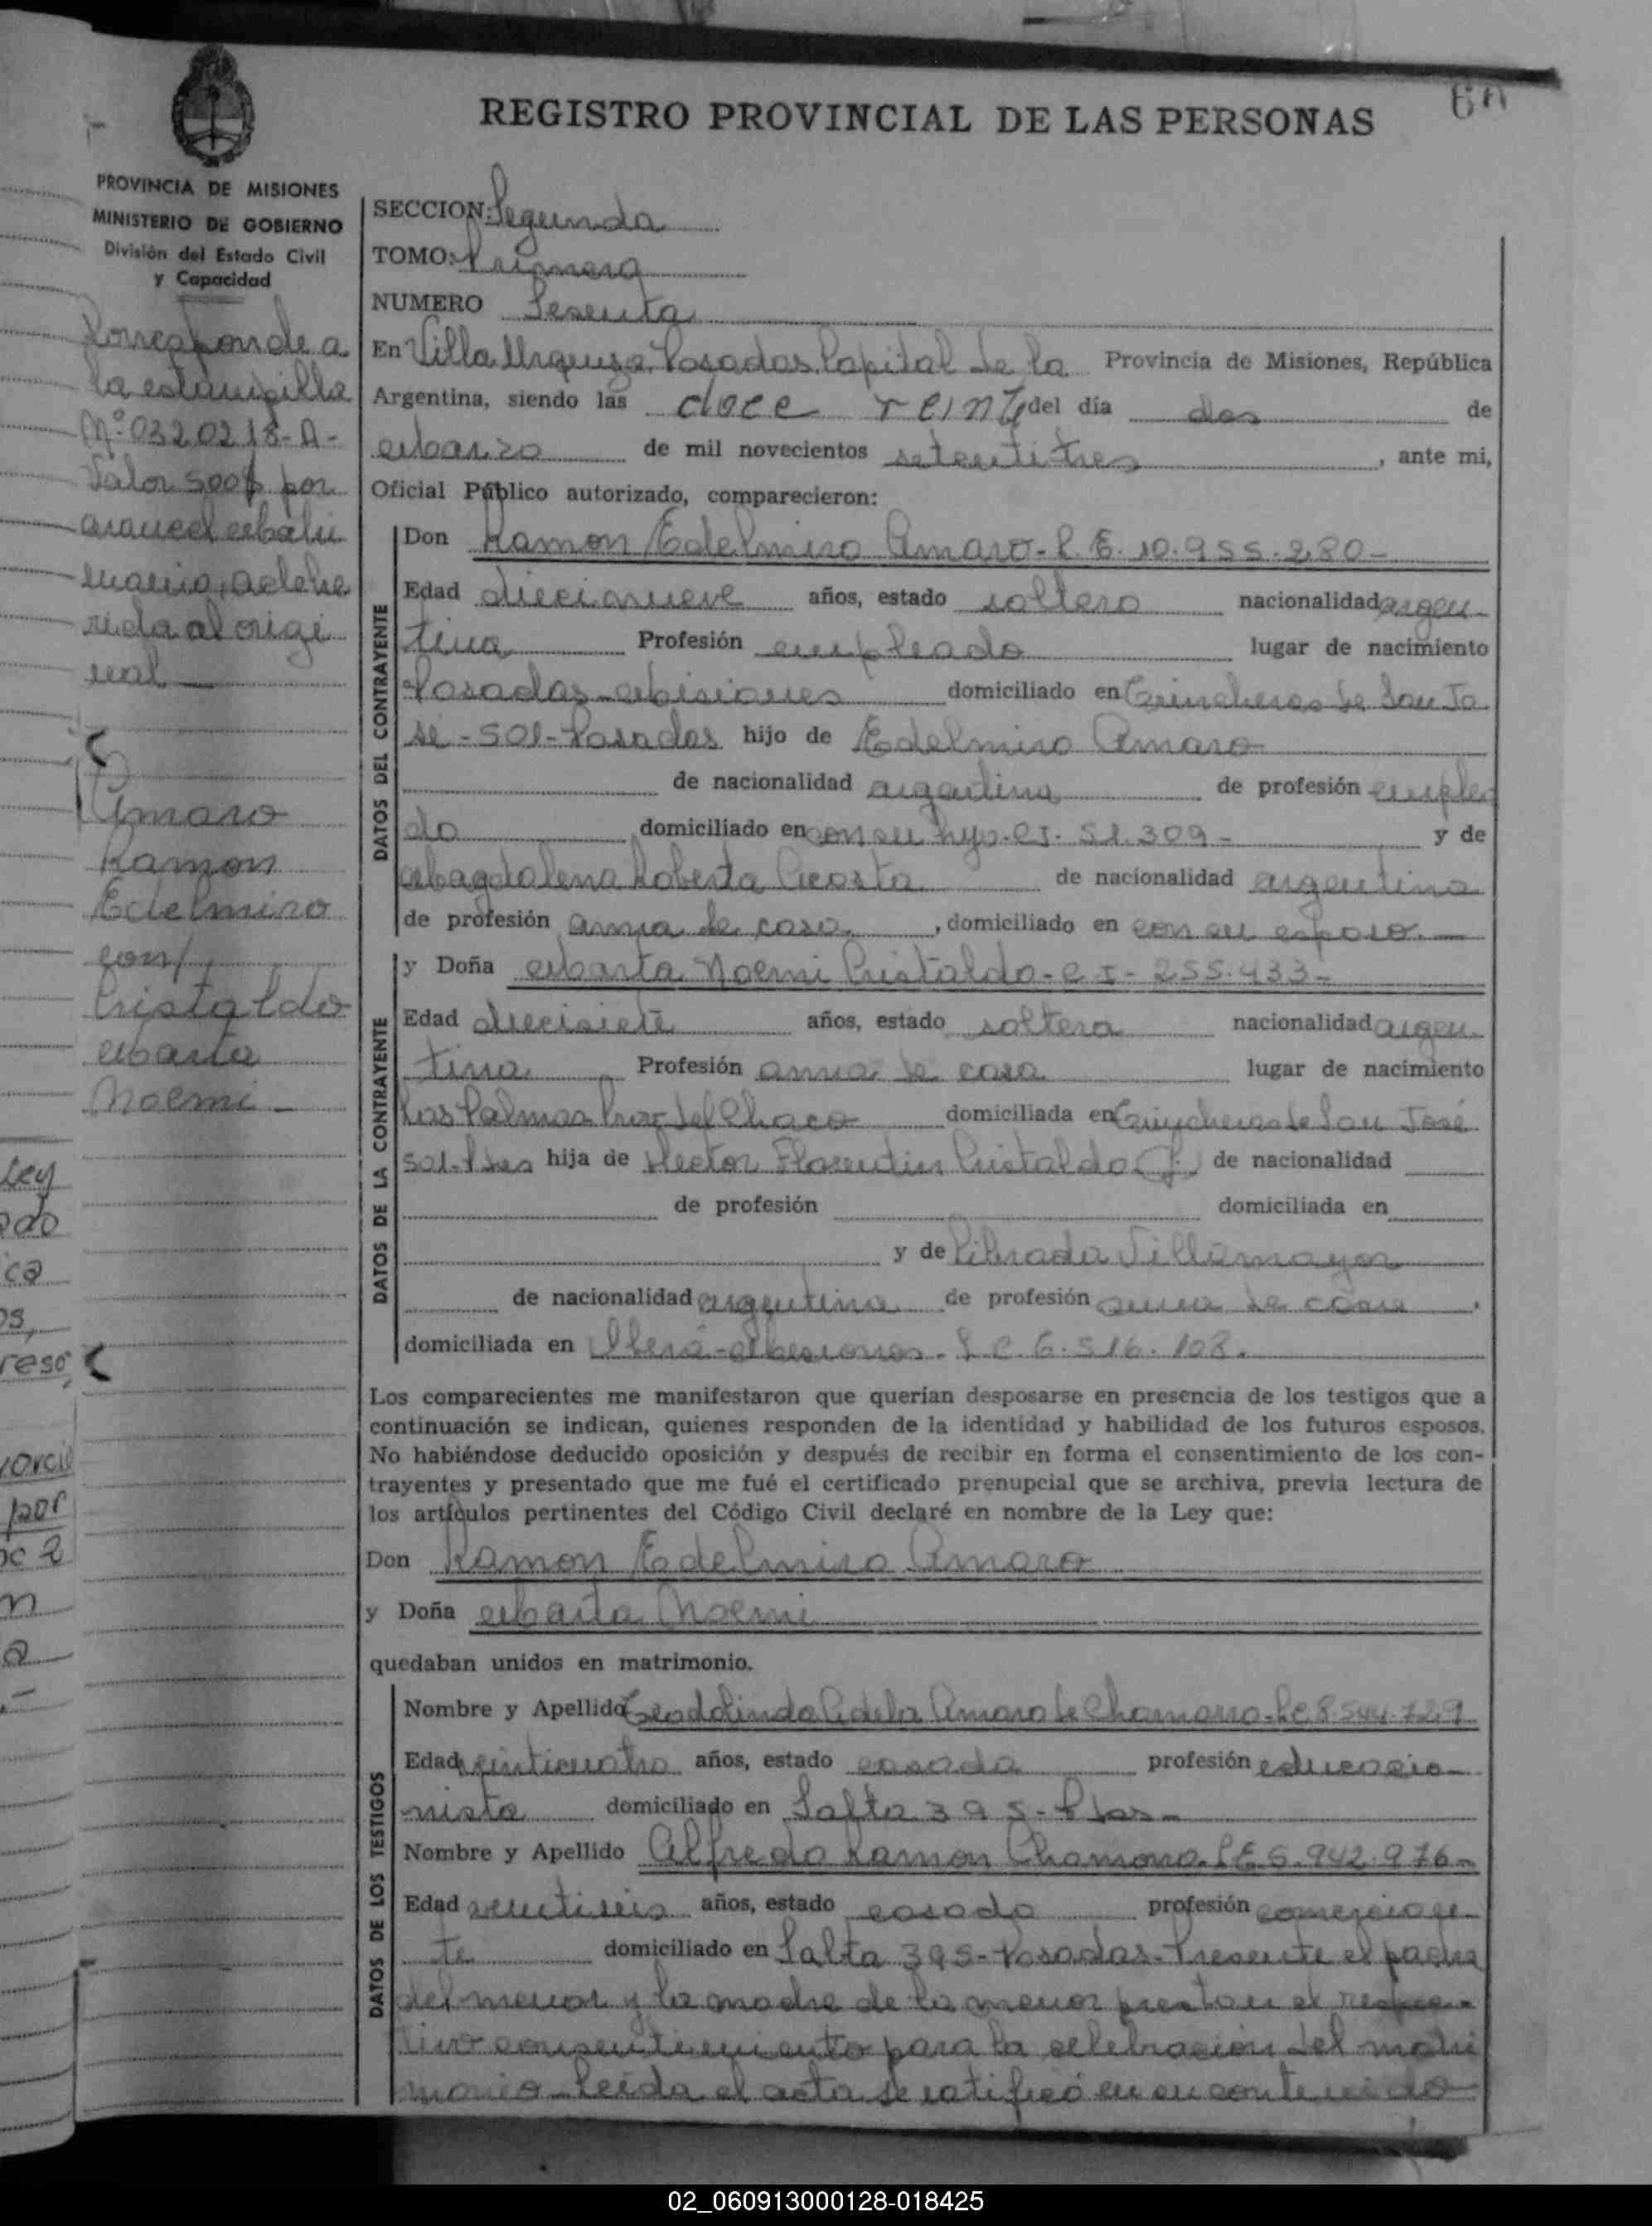 60
REGISTRO PROVINCIAL DE LAS PERSONAS
PROVINCIA DE MISIONES
MINISTERIO DE GOBIERNO
División del Estado Civil
y Capacidad
Corresponde a
la estampilla
Nº 0320218-A-
Valor 500$ por
arancel matri
monio, adhe
rida al origi
nal
Amaro
Ramon
Edelmiro
con/
Cristaldo
Marta
Noemi -
SECCION: Segunda
TOMO: Primero
NUMERO Sesenta
En Villa Urquiza, Posadas, Capital de la Provincia de Misiones, República
Argentina, siendo las doce veinte del día dos de
marzo de mil novecientos setentitres, ante mi,
Oficial Público autorizado, comparecieron:
DATOS DEL CONTRAYENTE
Don Ramon Edelmiro Amaro - L.E. 10.955.280-
Edad diecinueve años, estado soltero nacionalidad argen
tina Profesión empleado lugar de nacimiento
Posadas-Misiones domiciliado en Trincheras de San Jo
sé-501-Posadas hijo de Edelmiro Amaro
de nacionalidad argentina de profesión emplea
do domiciliado en con su hijo-CI. 51.309- y de
Magdalena Roberta Acosta de nacionalidad argentina
de profesión ama de casa, domiciliado en con su esposo.
DATOS DE LA CONTRAYENTE
y Doña Marta Noemi Cristaldo-CI-255.433-
Edad diecisiete años, estado soltera nacionalidad argen
tina Profesión ama de casa lugar de nacimiento
Las Palmas Prov del Chaco domiciliada en Trincheras de San José
501-Pdas hija de Hector Florentin Cristaldo (f.) de nacionalidad
de profesión domiciliada en
y de Librada Villamayor
de nacionalidad argentina de profesión ama de casa,
domiciliada en Iberá-Misiones-L.C. 6.516.108.
Los comparecientes me manifestaron que querían desposarse en presencia de los testigos que a
continuación se indican, quienes responden de la identidad y habilidad de los futuros esposos.
No habiéndose deducido oposición y después de recibir en forma el consentimiento de los con-
trayentes y presentado que me fué el certificado prenupcial que se archiva, previa lectura de
los artículos pertinentes del Código Civil declaré en nombre de la Ley que:
Don Ramon Edelmiro Amaro
y Doña Marta Noemi
quedaban unidos en matrimonio.
DATOS DE LOS TESTIGOS
Nombre y Apellido Teodolinda Adela Amaro de Chamorro-LC 8.544.729
Edad veinticuatro años, estado casada profesión educacio
nista domiciliado en Salta 395-Pdas-
Nombre y Apellido Alfredo Ramon Chamorro. LE 5.942.976-
Edad veintiseis años, estado casado profesión comercian
te domiciliado en Salta 395-Posadas-Presente el padre
del menor y la madre de la menor prestan el respec-
tivo consentimiento para la celebración del matri
monio-Leida el acta se ratificó en su contenido
Ley
ca
s,
resó
por
n
a
02_060913000128-018425